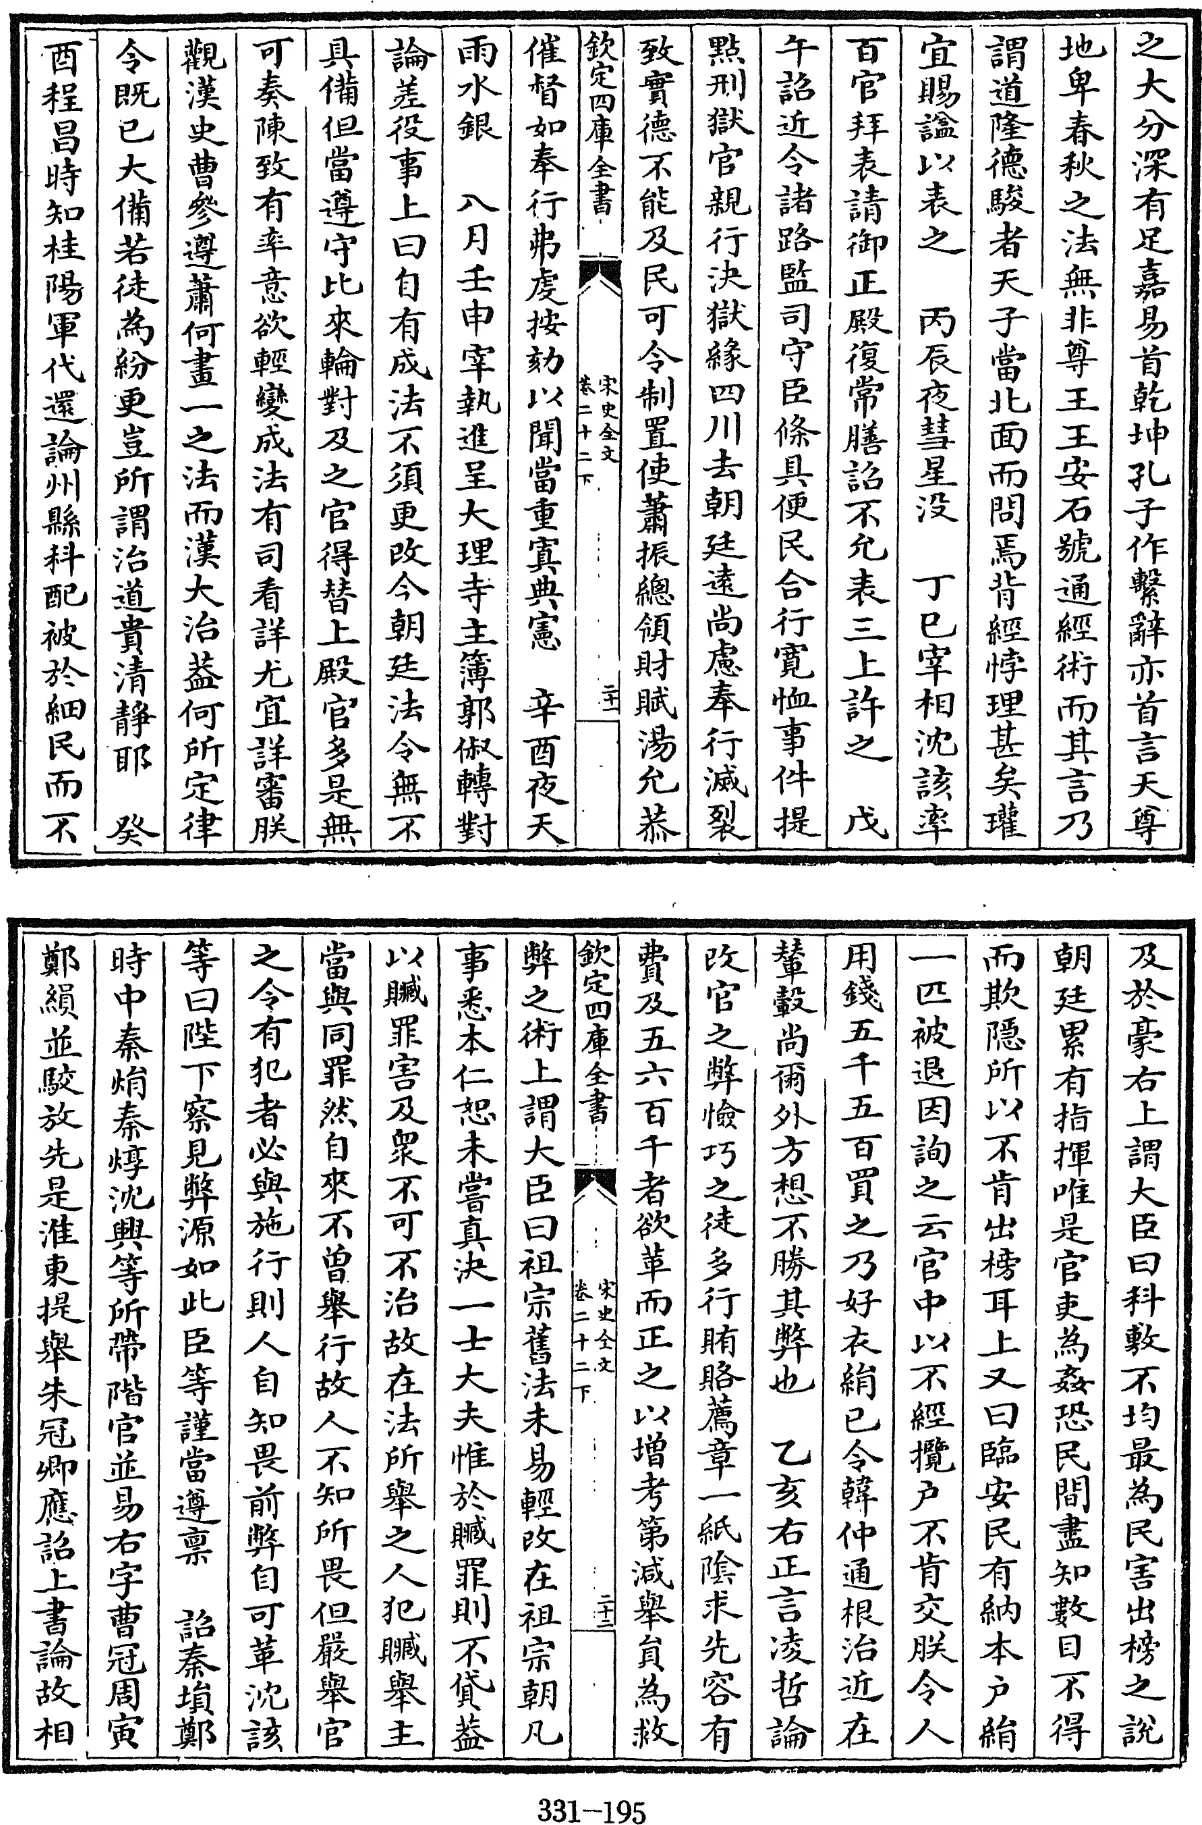 之大分深有足嘉易首乾坤孔子作繫辭亦首言天尊
地卑春秋之法無非尊王王安石號通經術而其言乃
謂道隆德駿者天子當北面而問焉背經悖理甚矣瓘
宜賜謚以表之　丙辰夜彗星没　丁巳宰相沈該率
百官拜表請御正殿復常膳詔不允表三上許之　戊
午詔近令諸路監司守臣條具便民合行寬恤事件提
點刑獄官親行決獄緣四川去朝廷遠尚慮奉行滅裂
致實德不能及民可令制置使蕭振總領財賦湯允恭
欽定四庫全書
宋史全文
卷二十二下
二十一
催督如奉行弗虔按劾以聞當重寘典憲　辛酉夜天
雨水銀　八月壬申宰執進呈大理寺主簿郭俶轉對
論差役事上曰自有成法不須更改今朝廷法令無不
具備但當遵守比來輪對及之官得替上殿官多是無
可奏陳致有率意欲輕變成法有司看詳尤宜詳審朕
觀漢史曹參遵蕭何畫一之法而漢大治葢何所定律
令既已大備若徒為紛更豈所謂治道貴清靜耶　癸
酉程昌時知桂陽軍代還論州縣科配被於細民而不
及於豪右上謂大臣曰科敷不均最為民害出榜之說
朝廷累有指揮唯是官吏為姦恐民間盡知數目不得
而欺隱所以不肯出榜耳上又曰臨安民有納本户絹
一匹被退因詢之云官中以不經攬户不肯交朕令人
用錢五千五百買之乃好衣絹已令韓仲通根治近在
輦轂尚爾外方想不勝其弊也　乙亥右正言凌哲論
改官之弊憸巧之徒多行賄賂薦章一紙陰求先容有
費及五六百千者欲革而正之以增考第減舉員為救
欽定四庫全書
宋史全文
卷二十二下
二十二
弊之術上謂大臣曰祖宗舊法未易輕改在祖宗朝凡
事悉本仁恕未嘗真決一士大夫惟於贓罪則不貸葢
以贓罪害及衆不可不治故在法所舉之人犯贓舉主
當與同罪然自來不曾舉行故人不知所畏但嚴舉官
之令有犯者必與施行則人自知畏前弊自可革沈該
等曰陛下察見弊源如此臣等謹當遵禀　詔秦塤鄭
時中秦焴秦焞沈興等所帶階官並易右字曹冠周寅
鄭縜並駮放先是淮東提舉朱冠卿應詔上書論故相
331-195